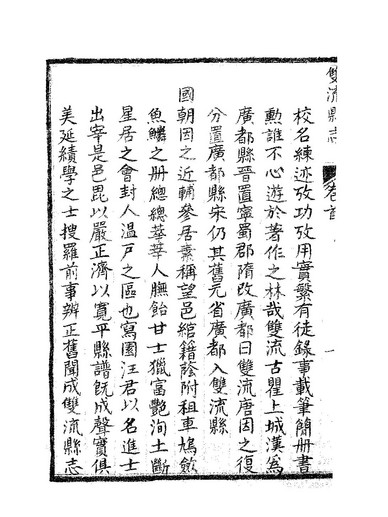 雙流縣志 卷首 一
校名練迹攷功攷用實繁有徒錄事載筆簡冊書
勲誰不心遊於著作之林哉雙流古瞿上城漢爲
廣都縣晉置寧蜀郡隋改廣都曰雙流唐因之復
分置廣都縣宋仍其舊元省廣都入雙流縣
國朝因之近輔參居素稱望邑綰籍蔭附租車鳩斂
魚鱗之册總總莘莘人膴飴甘士獵富艷洵土斷
星居之會封人温戸之區也寫園汪君以名進士
出宰是邑毘以嚴正濟以寬平縣譜旣成聲實俱
美延績學之士搜羅前事辨正舊聞成雙流縣志